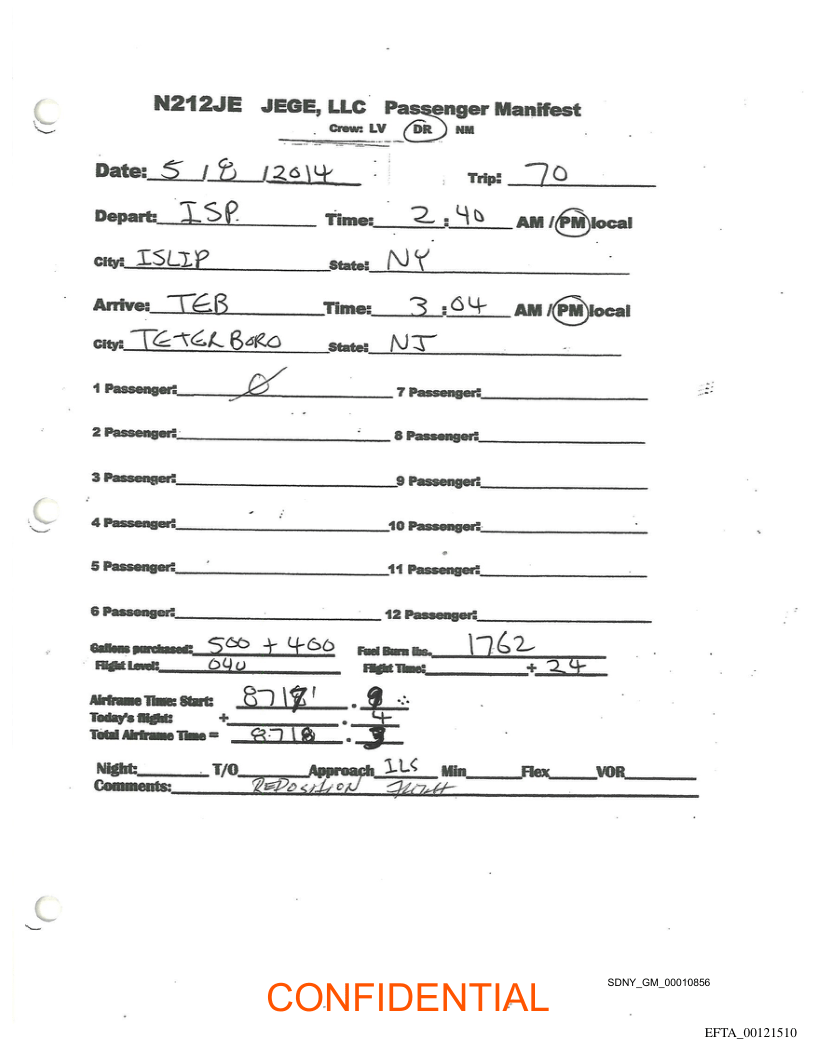 N212JE JEGE, LLC Passenger Manifest
Crew: LV DR NM
Date: 5 / 8 / 2014 Trip: 70
Depart: ISP. Time: 2 : 40 AM / PM local
City: ISLIP State: NY
Arrive: TEB Time: 3 : 04 AM / PM local
City: TETERBORO State: NJ
1 Passenger: 0 7 Passenger:
2 Passenger: 8 Passenger:
3 Passenger: 9 Passenger:
4 Passenger: 10 Passenger:
5 Passenger: 11 Passenger:
6 Passenger: 12 Passenger:
Gallons purchased: 500 + 400 Fuel Burn lbs. 1762
Flight Level: 040 Flight Time: + 24
Airframe Time: Start:
Today's flight: + . 4
Total Airframe Time = 8718 .
Night: T/O Approach ILS Min Flex VOR
Comments: REPOSITION FLIGHT
CONFIDENTIAL
SDNY_GM_00010856
EFTA_00121510